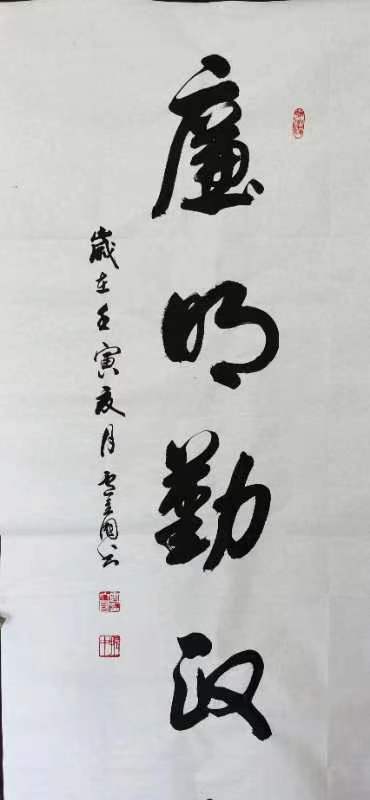 廉明勤政
歲在壬寅夏月